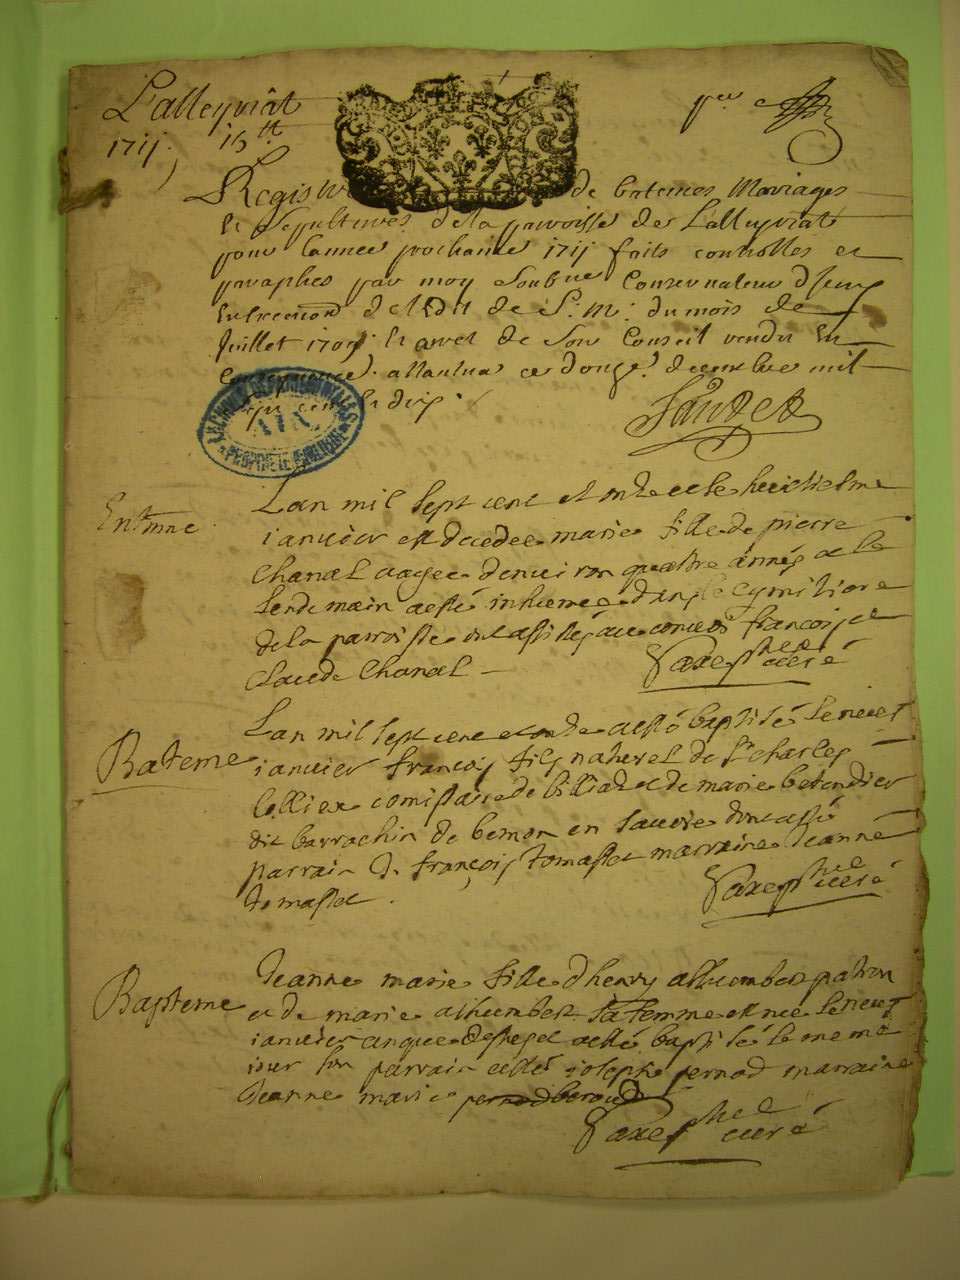 Lalleyriat
1711. 15 tt
Registre de batemes Mariages
et Sepultures de la parroisse de Lalleyriat
pour l'année prochaine 1711 faits controlles et
paraphes par moy Conservateur
en de l'Edit de S. M. du mois de
Juillet 1709 et arret de son Conseil rendu en
consequence. a ce douze decembre mil
sept cent et dix.
ARCHIVES DEPARTEMENTALES
AIN
PROPRIETE PUBLIQUE
Lan mil sept cent et onze et le huictiesme
ianvier est decedee marie fille de pierre
Chanel aagee denviron quattre années et le
lendemain a esté inhumee dans le cymitiere
de la parroisse ont assistés au convoi francois et
Claude Chanel
curé
Bateme
Lan mil sept cent et onze a esté baptisé le neuf
ianvier francois fils naturel de Sr charles
Collier comissaire de et de marie
dit barrachin de en Savoie dont a esté
parrain francois tomasset marraine Jeanne
tomasset.
curé
Bapteme
Jeanne marie fille d'henry alhumbert patron
et de marie alhumbert sa femme est nee le neuf
ianvier a esté baptisée le meme
iour son parrain a esté ioseph pernod marraine
Jeanne marie
curé